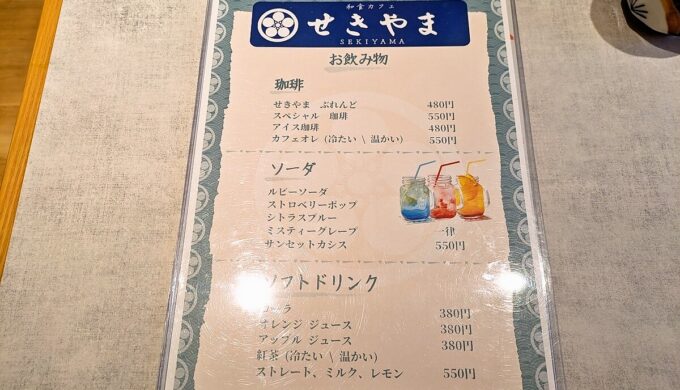 和食カフェ
せきやま
SEKIYAMA
お飲み物
珈琲
せきやま ぶれんど 480円
スペシャル 珈琲 550円
アイス珈琲 480円
カフェオレ (冷たい \ 温かい) 550円
ソーダ
ルビーソーダ
ストロベリーポップ
シトラスブルー
ミスティーグレープ 一律
サンセットカシス 550円
ソフトドリンク
コーラ 380円
オレンジ ジュース 380円
アップル ジュース 380円
紅茶 (冷たい \ 温かい)
ストレート、ミルク、レモン 550円